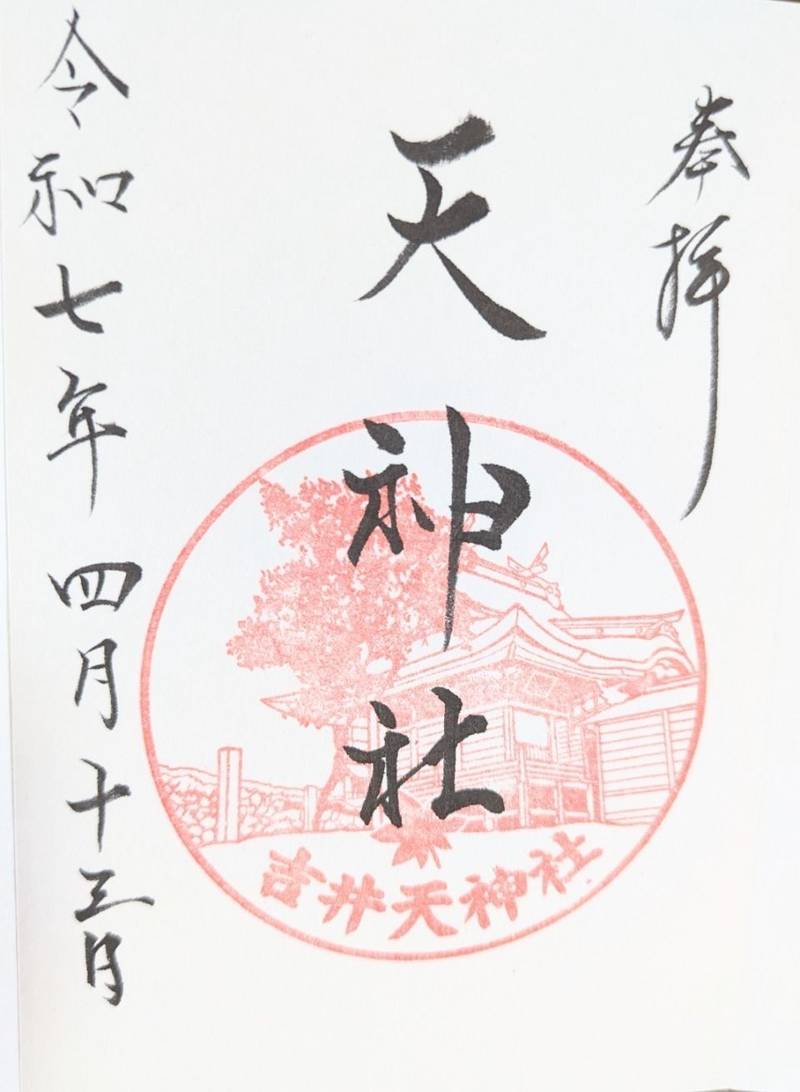 奉拝
天神社
吉井天神社
令和七年四月十三日